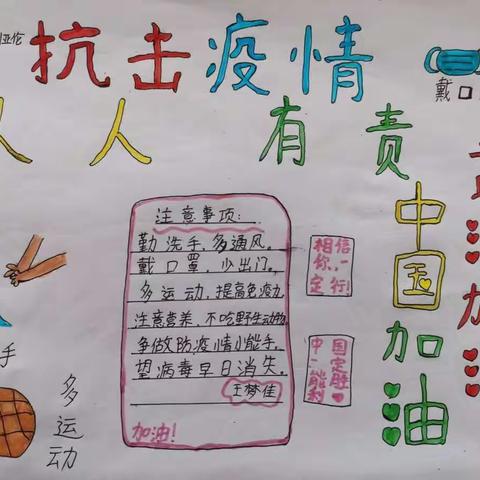 亚伦
抗击疫情
戴口
人人有责
注意事项:
勤洗手,多通风。
戴口罩,少出门。
多运动,提高免疫力
注意营养,不吃野生动物
争做防疫情小能手。
望病毒早日消失。
王梦佳
加油!
相信
你,一
定行!
中国
一定
能胜
利
中国加油
加油
手
多运动